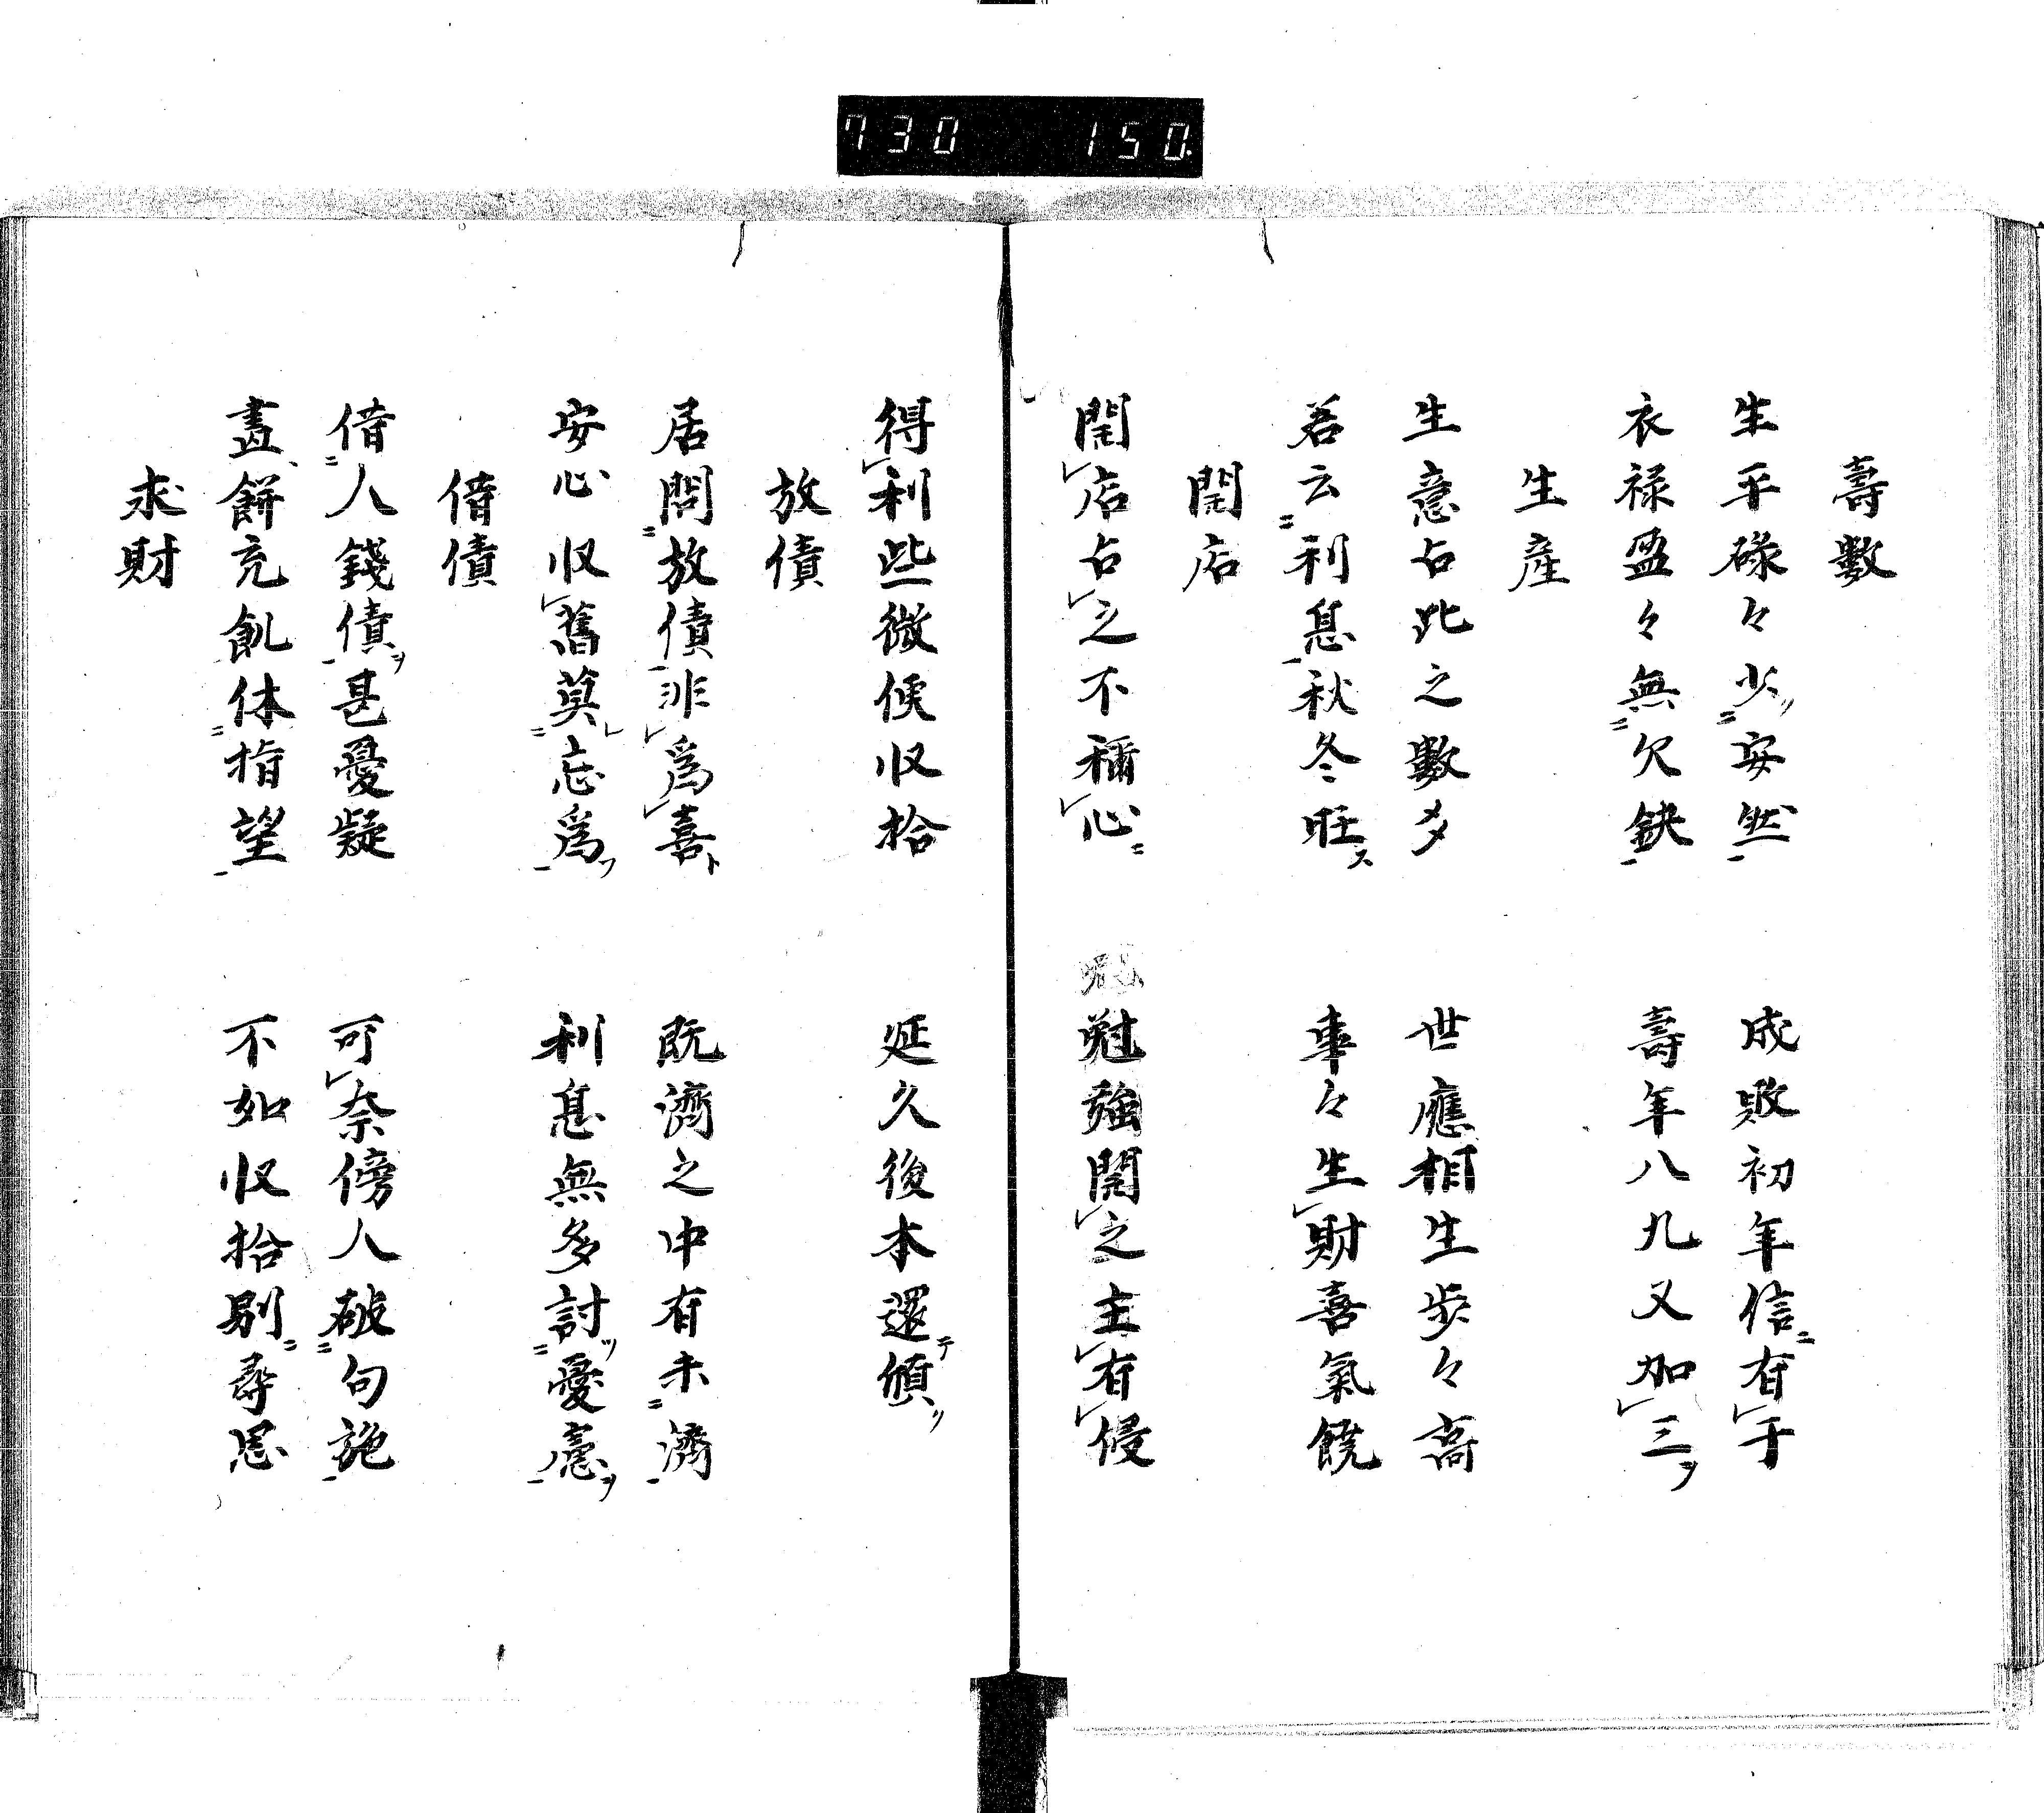 730 150
壽數
生平碌々少安然 成敗初年信有于
衣禄盈々無欠鈌 壽年八九又加三ヲ
生産
生意占此之數多 世應相生歩々高
若云利息秋冬旺ス 事々生財喜氣饒
開店
開店占之不稱心 勉強開之主有侵
得利些微便収拾 延久後本還傾
放債
居問放債非爲喜ト 既濟之中有未濟
安心収舊莫忘爲 利息無多討憂慮ヲ
借債
借人錢債ヲ甚憂疑 可奈傍人破句施
畫餅充飢休指望 不如収拾別尋思
求財